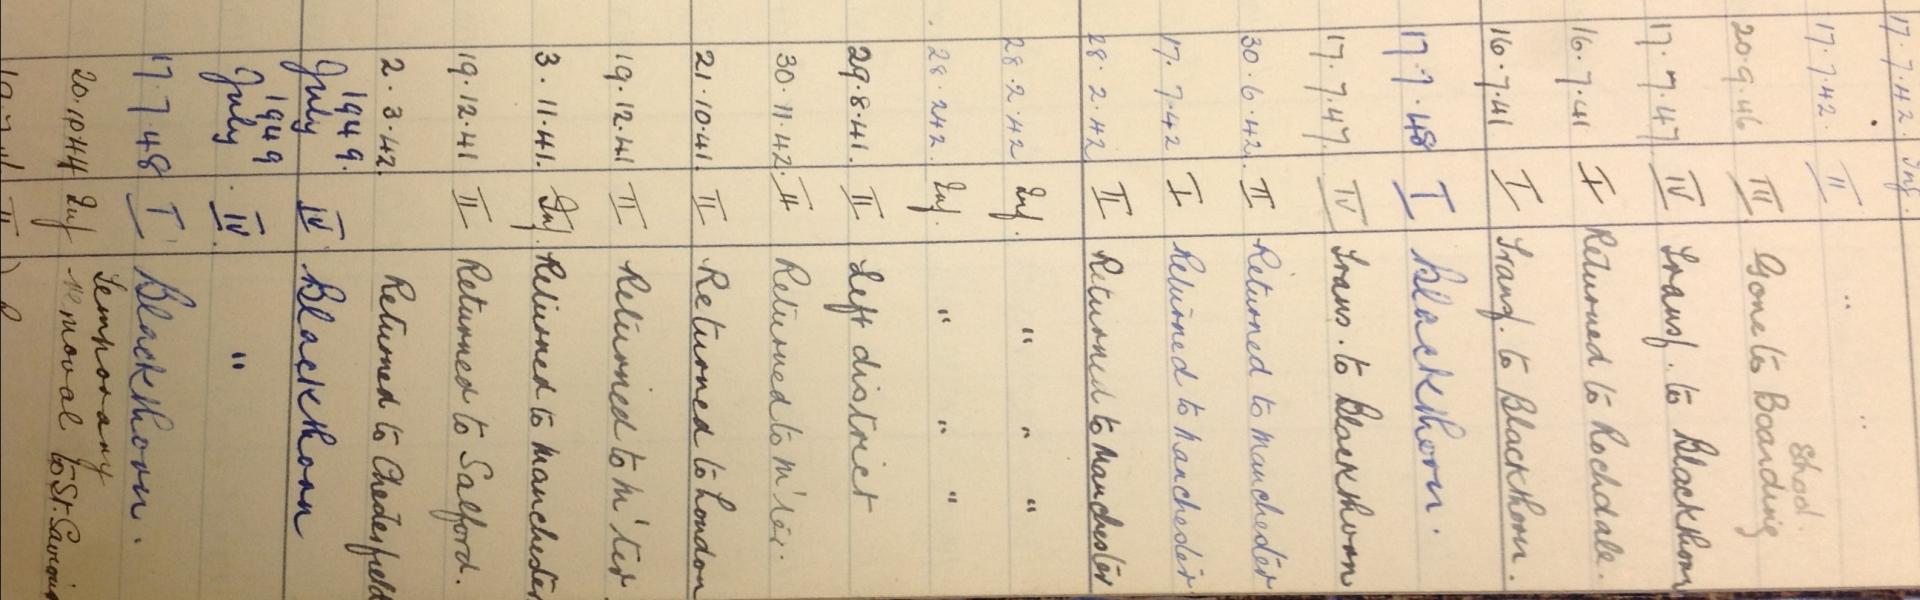 17.7.42. Inf. "
17.7.42. II "
20.9.46 III Gone to Boarding
17.7.47 IV Transf. to Blackthorn
16.7.41 I Returned to Rochdale.
16.7.41 I Transf. to Blackthorn.
17.7.48 I Blackthorn.
17.7.47. IV Trans. to Blackthorn
30.6.42. II Returned to Manchester
17.7.42 I Returned to Manchester
28.2.42 II Returned to Manchester
28.2.42 Inf. " " "
28.2.42. Inf. " " "
29.8.41. II Left district
30.11.42. II Returned to M'ter.
21.10.41. II Returned to London
19.12.41 II Returned to M'ter
3.11.41. Inf. Returned to Manchester
19.12.41 II Returned to Salford.
2.3.42. Returned to Chesterfield
July 1949. IV Blackthorn
July 1949. IV "
17.7.48 I Blackthorn.
20.10.44 Inf Temporary
removal to St. Saviour
II